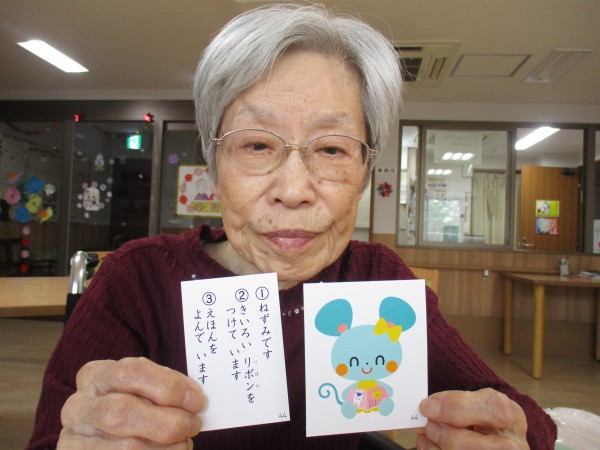 ①ねずみです
②きいろい リボンを
つけて います
③えほんを
よんで います
44
44